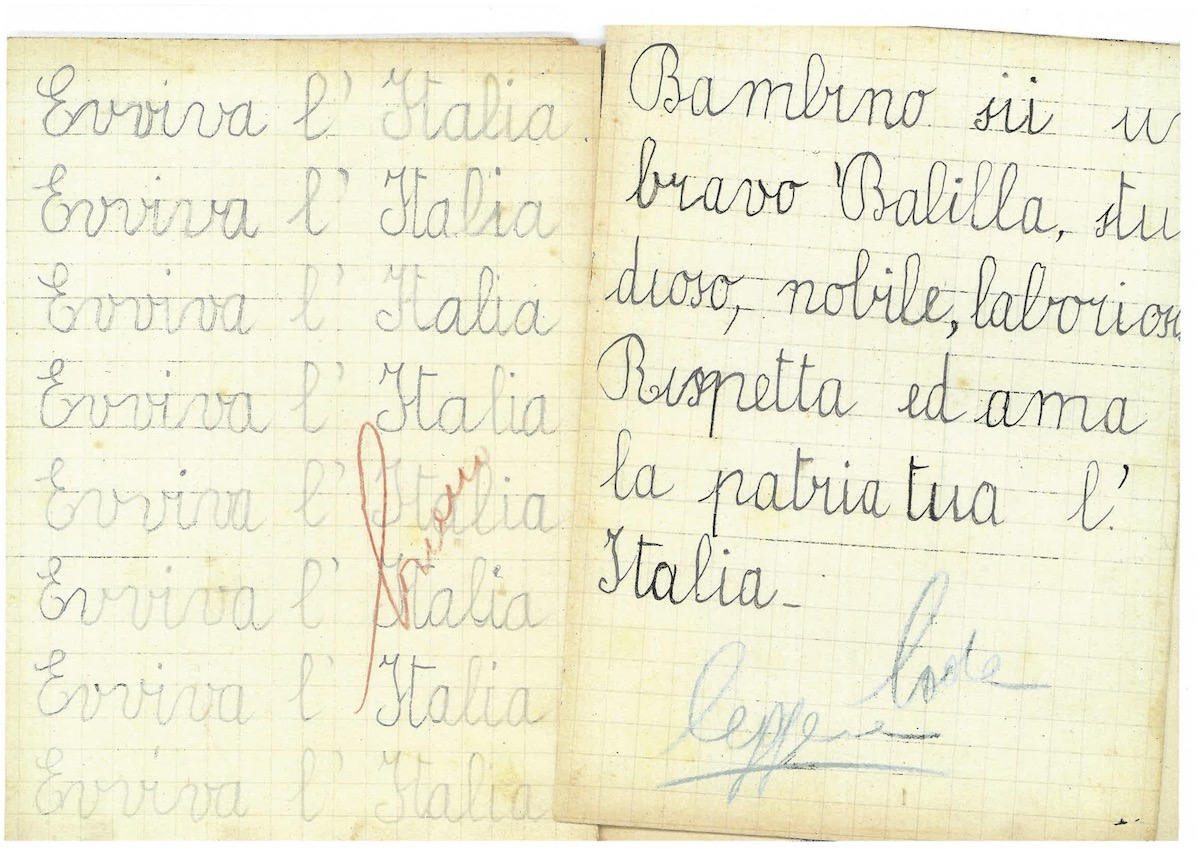 Evviva l' Italia
Evviva l' Italia
Evviva l' Italia
Evviva l' Italia
Evviva l' Italia
Evviva l' Italia
Evviva l' Italia
Evviva l' Italia
Bambino sii u
bravo Balilla, stu
dioso, nobile, laborios
Rispetta ed ama
la patria tua l'
Italia_
lode